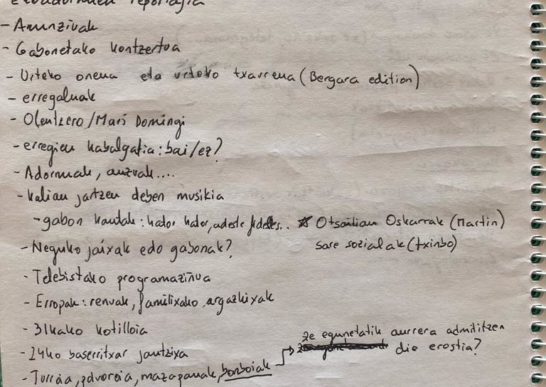 erreportajia
- Anunzivak
- Gabonetako kontzertua
- Urteko onena eta urteko txarrena (Bergara edition)
- erregaluak
- Olentzero/Mari Domingi
- erregien kabalgatia: bai/ez?
- Adornuak, auzuak....
- kalian jartzen deben musikia
- gabon kantak: hator hator, adeste fideles.. * Otsailian Oskarrak (Martin)
sare sozialak (txinbo)
- Neguko jaixak edo gabonak?
- Telebistako programazinua
- Erropak: renuak, familixako argazkixak
- 31kako kotilloia
- 24ko baserritxar jantzixa
- Turroia, polboroia, mazapanak, bonboiak → ze egunetatik aurrera admititzen die erostia?